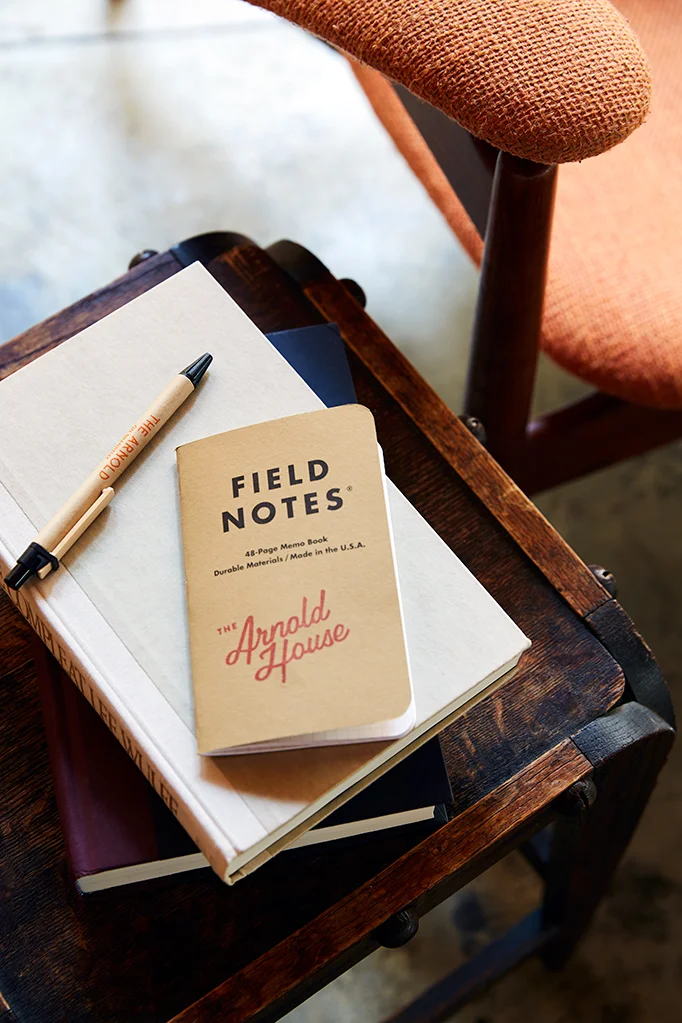 FIELD
NOTES®
48-Page Memo Book
Durable Materials / Made in the U.S.A.
THE Arnold
House
THE ARNOLD